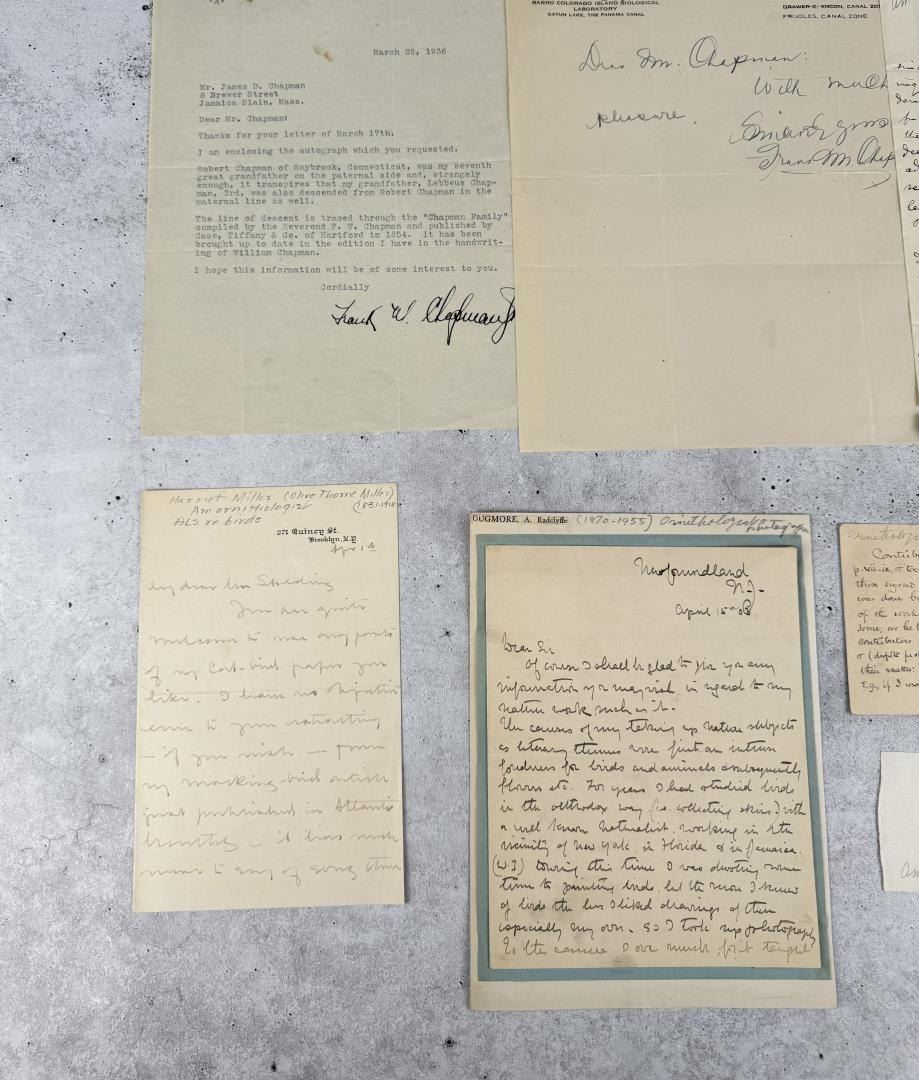 March 25, 1936
Mr. James D. Chapman
8 Brewer Street
Jamaica Plain, Mass.
Dear Mr. Chapman:
Thanks for your letter of March 17th.
I am enclosing the autograph which you requested.
Robert Chapman of Saybrook, Connecticut, was my seventh
great grandfather on the paternal side and, strangely
enough, it transpires that my grandfather, Lebbeus Chap-
man, 3rd, was also descended from Robert Chapman in the
maternal line as well.
The line of descent is traced through the "Chapman Family"
compiled by the Reverend F. W. Chapman and published by
Case, Tiffany & Co. of Hartford in 1854. It has been
brought up to date in the edition I have in the handwrit-
ing of William Chapman.
I hope this information will be of some interest to you.
Cordially
Frank W. Chapman Jr
BARRO COLORADO ISLAND BIOLOGICAL
LABORATORY
GATUN LAKE, THE PANAMA CANAL
DRAWER C, ANCON, CANAL ZO
FRIJOLES, CANAL ZONE
Dear Mr. Chapman:
With much
pleasure.
Sincerely yours
Frank M. Chap
Harriet Miller (Olive Thorne Miller)
Am ornithologist (1831-1918
ALS re birds
271 Quincy St.
Brooklyn, N.Y.
Apr 1st
My dear Mrs
You are quite
welcome to use any parts
of my Cat-bird paper you
like. I have no objection
even to your extracting
- if you wish - from
my mocking-bird article
just published in Atlantic
Monthly - it has much
more to say of song than
DUGMORE, A. Radclyffe (1870-1955) Ornithologist photographer
Newfoundland
N.J.
April 15th 03
Dear Sir
Of course I shall be glad to give you any
information you may wish in regard to my
nature work such as it is.
The causes of my taking up nature subjects
as literary themes were first an
fondness for birds and animals & subsequently
flowers etc. For years I had studied birds
in the orthodox way (i.e. collecting skins) with
a well known Naturalist, working in the
vicinity of New York, in Florida & in Jamaica.
(W.I) During this time I was devoting some
time to painting birds, but the more I knew
of birds the less I liked drawings of them
especially my own. So I took up photography
To the camera I owe much for it taught
Contrib
p. vii-ix,
those signed
was done b
of the work
some, as he
contributors
(despite
their matter.
E.g., if I